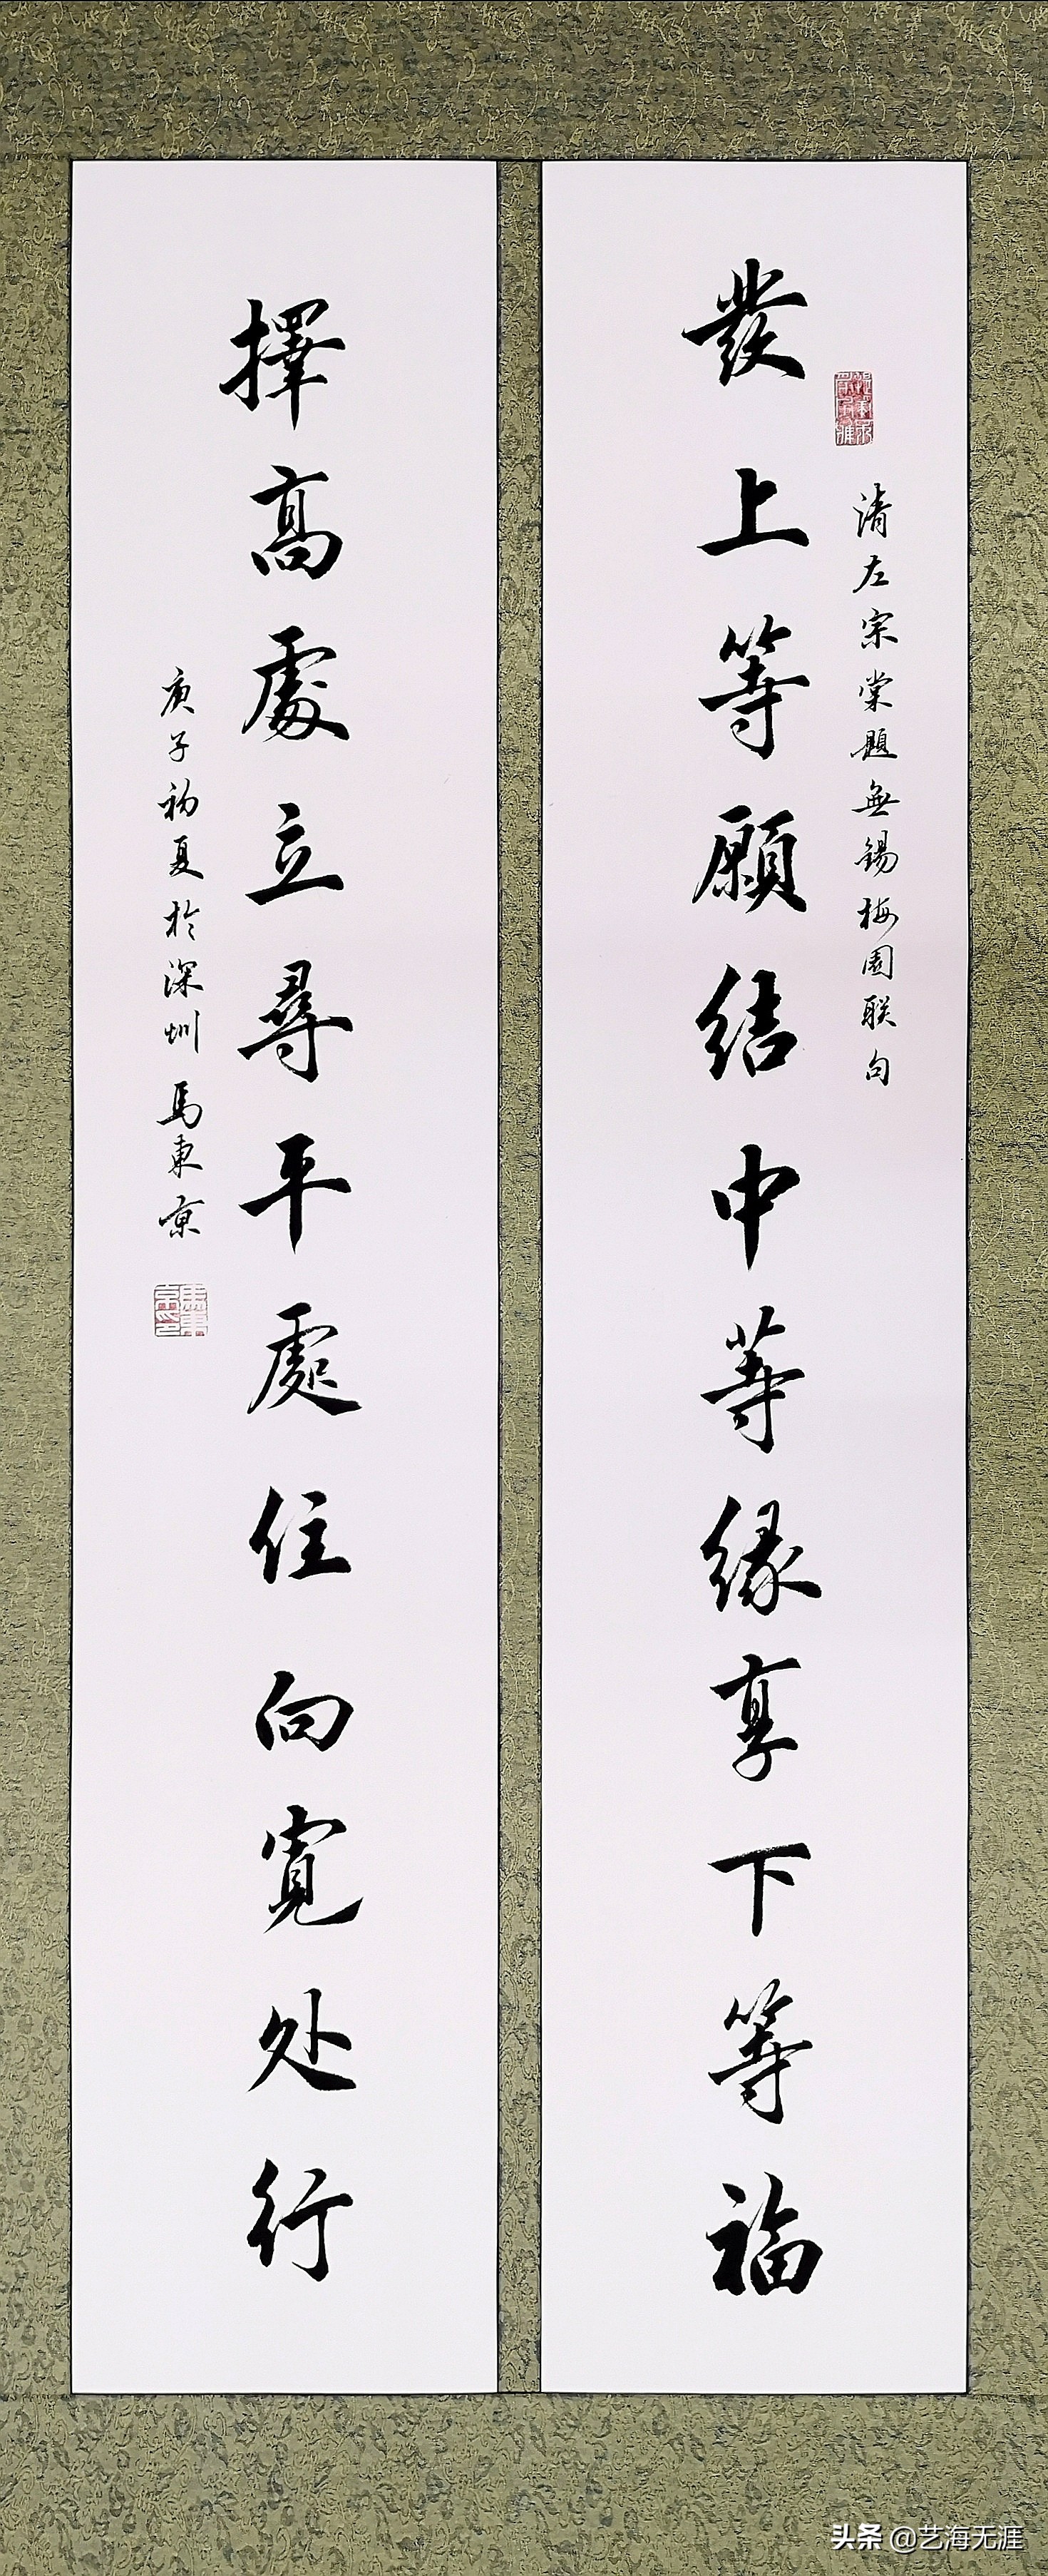 發上等願結中等緣享下等福
清左宗棠題無錫梅園联句
擇高處立尋平處住向寬处行
庚子初夏於深圳馬東京
頭条 @艺海无涯